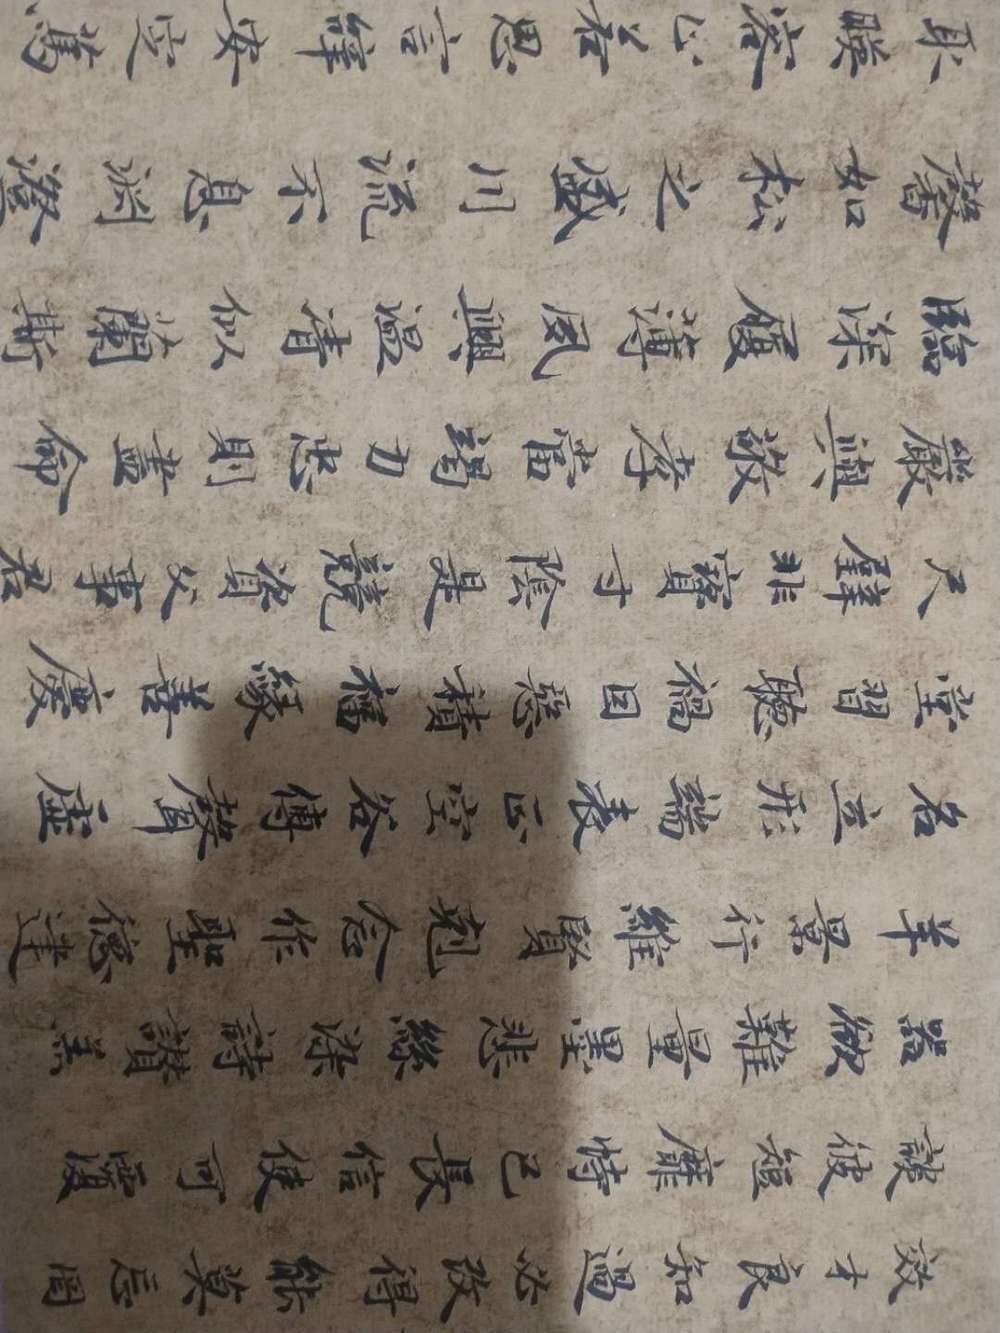 效才良知過必改得能莫忘罔
談彼短靡恃己長信使可覆
器欲難量墨悲絲染詩讚羔
羊景行維賢克念作聖德建
名立形端表正空谷傳聲虛
堂習聽禍因惡積福緣善慶
尺璧非寶寸陰是競資父事君
嚴與敬孝當竭力忠則盡命
臨深履薄夙興溫清似蘭斯
馨如松之盛川流不息淵澄
取暎容止若思言辭安定篤